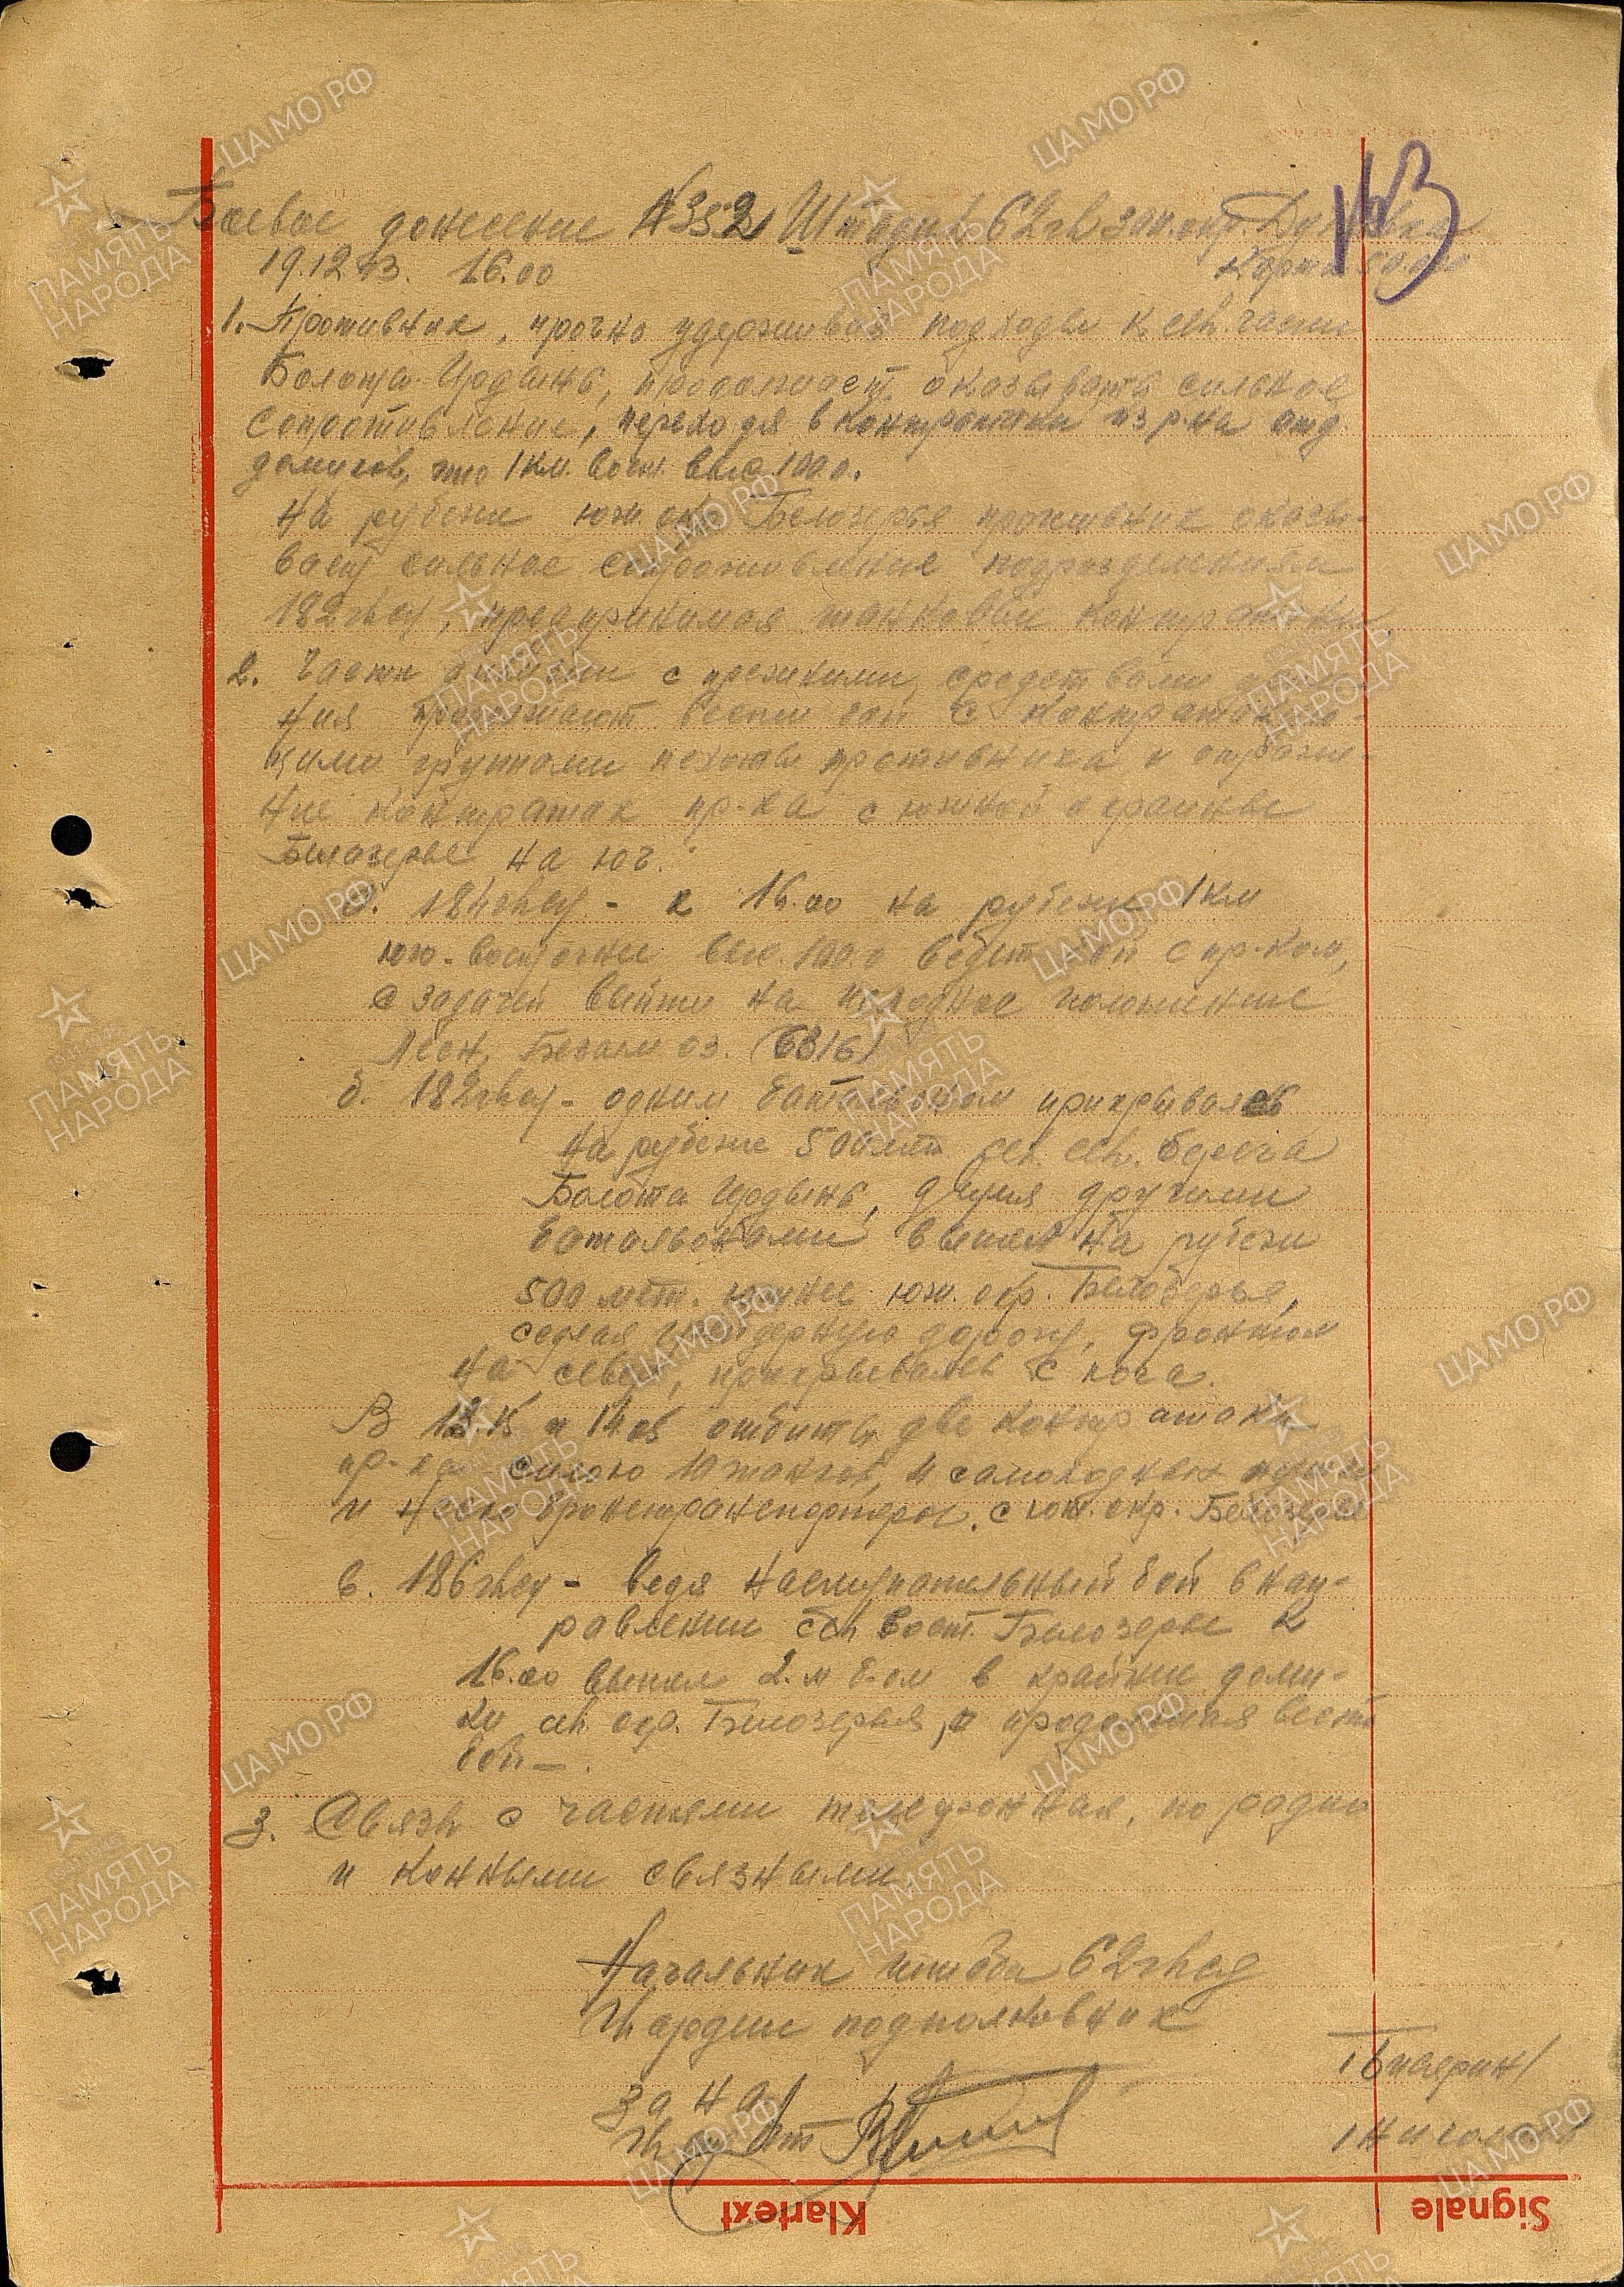 Боевое донесение №352 Штадив 62 гв зап. окр. Дубиевка
19.12.43. 16.00 Карта 50.000
113
1. Противник, прочно удерживая подходы к сев. части
Болота Ирдынь, продолжает оказывать сильное
сопротивление, переходя в контратаки из р-на отд.
домиков, что 1 км. вост. выс. 100.0.
На рубеже юж. окр. Белозерья противник оказы-
вает сильное сопротивление подразделениям
182 гвсп, предпринимая танковые контратаки.
2. Части дивизии с прежними средствами
ния продолжают вести бой с контратакую-
щими группами пехоты противника и отраже-
ние контратак пр-ка с южной окраины
Белозерье на юг.
а. 184 гвсп - к 16.00 на рубеже 1 км
юго-восточнее выс. 100.0 ведет бой с пр-ком,
с задачей выйти на исходное положение
Лесн, Безым оз. (6316)
б. 182 гвсп - одним батальоном прикрываясь
на рубеже 500 мт сев. берега
Болота Ирдынь, двумя другими
батальонами вышел на рубеж
500 мет. южнее юж. окр. Белозерья,
седлая дорогу, фронтом
на север, прикрываясь с юга.
В 13.15 и 14.05 отбиты две контратаки
пр-ка силою 10 танков, 4 самоходных пушки
и бронетранспортеров с юж. окр. Белозерье
в. 186 гвсп - ведя наступательный бой в нап-
равлении сев вост. Белозерье к
16.00 вышел 2-м б-ом в крайние доми-
ки сев. окр. Белозерья, продолжая вести
бой —.
3. Связь с частями телефонная, по радио
и конными связными
Начальник штаба 62 гвсд
Гвардии подполковник
за на